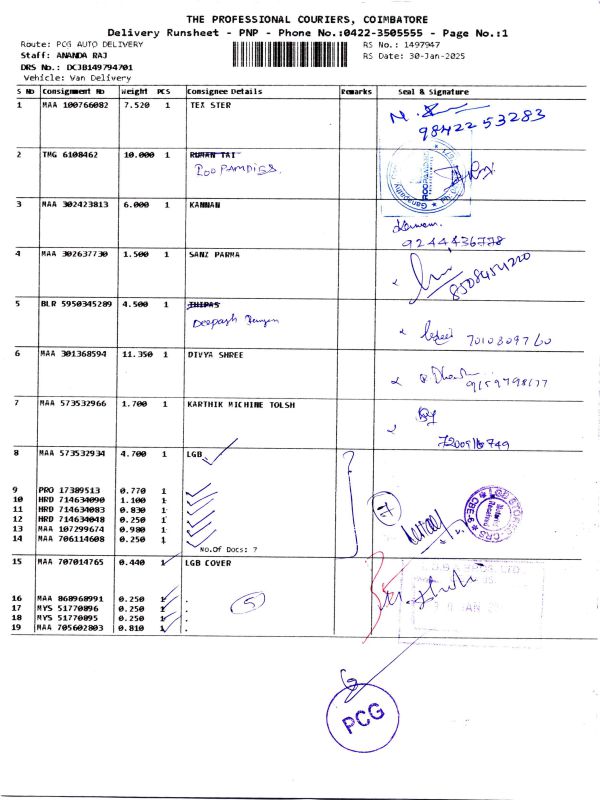 THE PROFESSIONAL COURIERS, COIMBATORE
Delivery Runsheet - PNP - Phone No.:0422-3505555 - Page No.:1
Route: PCG AUTO DELIVERY RS No.: 1497947
Staff: ANANDA RAJ RS Date: 30-Jan-2025
DRS No.: DCJB149794701
Vehicle: Van Delivery
S No Consignment No Weight PCS Consignee Details Remarks Seal & Signature
1 MAA 100766082 7.520 1 TEX STER
98422 53283
2 TMG 6108462 10.000 1 RUMAN TAI
3 MAA 302423813 6.000 1 KANNAN
9244436778
4 MAA 302637730 1.500 1 SANZ PARMA
8508454220
5 BLR 5950345289 4.500 1 THIPAS
Deepash
7010309760
6 MAA 301368594 11.350 1 DIVYA SHREE
7 MAA 573532966 1.700 1 KARTHIK MICHINE TOLSH
8 MAA 573532934 4.700 1 LGB
9 PRO 17389513 0.770 1
10 HRD 714634090 1.100 1
11 HRD 714634083 0.830 1
12 HRD 714634048 0.250 1
13 MAA 107299674 0.980 1
14 MAA 706114608 0.250 1
No.Of Docs: 7
15 MAA 707014765 0.440 1 LGB COVER
16 MAA 868968991 0.250 1 .
17 MYS 51770896 0.250 1 .
18 MYS 51770895 0.250 1 .
19 MAA 705602803 0.810 1 .
5
PCG